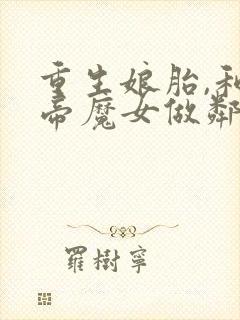 重生娘胎,和
帝魔女做鄰
羅樹寧